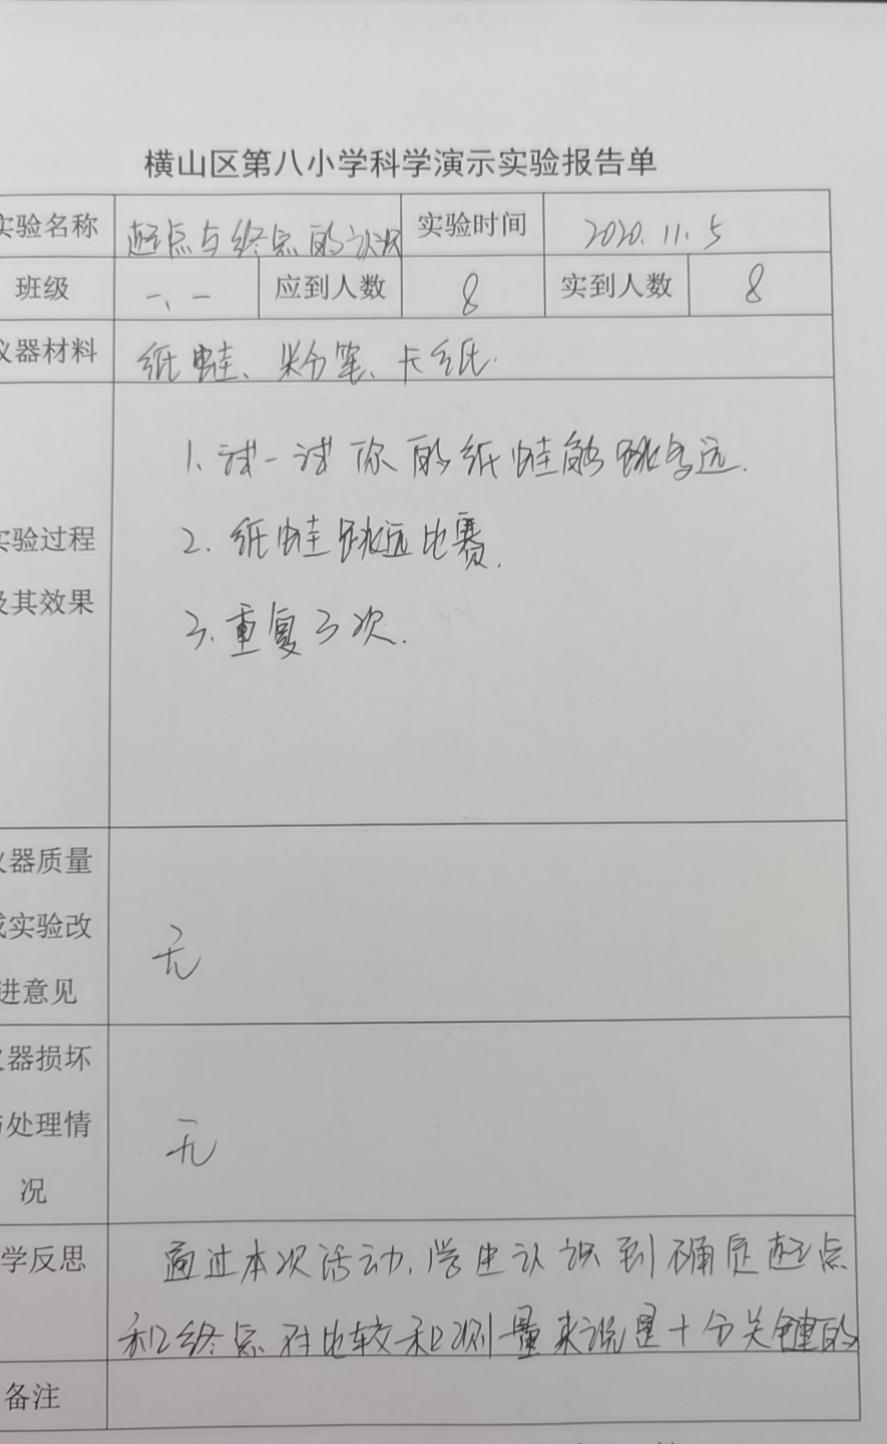 横山区第八小学科学演示实验报告单
实验名称 起点与终点的认识 实验时间 2020.11.5
班级 一、一 应到人数 8 实到人数 8
仪器材料 纸蛙、粉笔、卡纸.
1、试一试你的纸蛙能跳多远.
2. 纸蛙跳远比赛.
实验过程
及其效果
3、重复3次.
仪器质量
或实验改
进意见
无
仪器损坏
与处理情
况
无
学反思 通过本次活动,学生认识到确定起点
和终点对比较和测量来说是十分关键的
备注